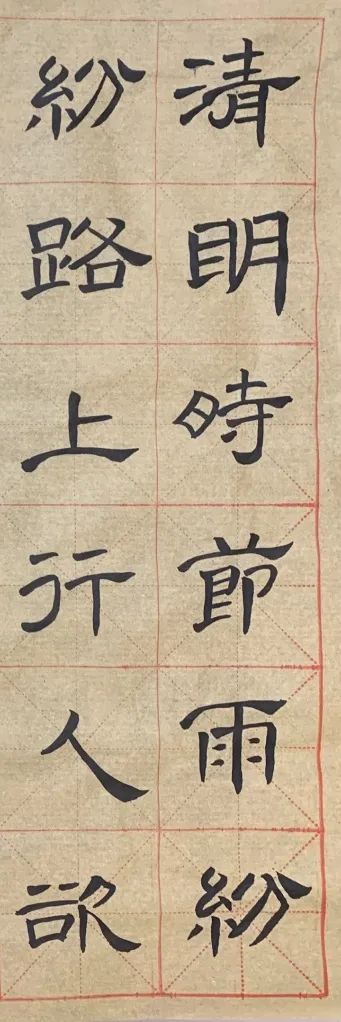 清明時節雨紛
紛路上行人欲